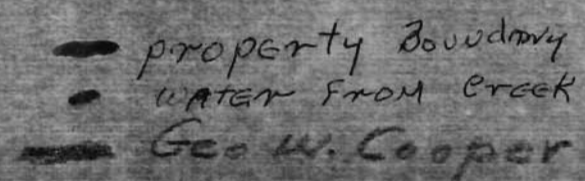 property Boundary
water from creek
Geo W. Cooper